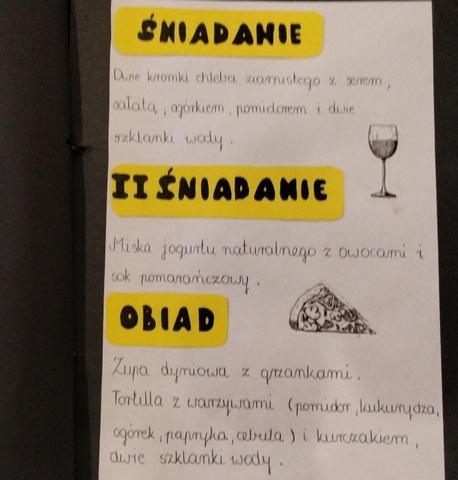 ŚNIADANIE
Dwie kromki chleba ziarnistego z serem,
sałatą, ogórkiem, pomidorem i dwie
szklanki wody.
II ŚNIADANIE
Miska jogurtu naturalnego z owocami i
sok pomarańczowy.
OBIAD
Zupa dyniowa z grzankami.
Tortilla z warzywami (pomidor, kukurydza,
ogórek, papryka, cebula) i kurczakiem,
dwie szklanki wody.